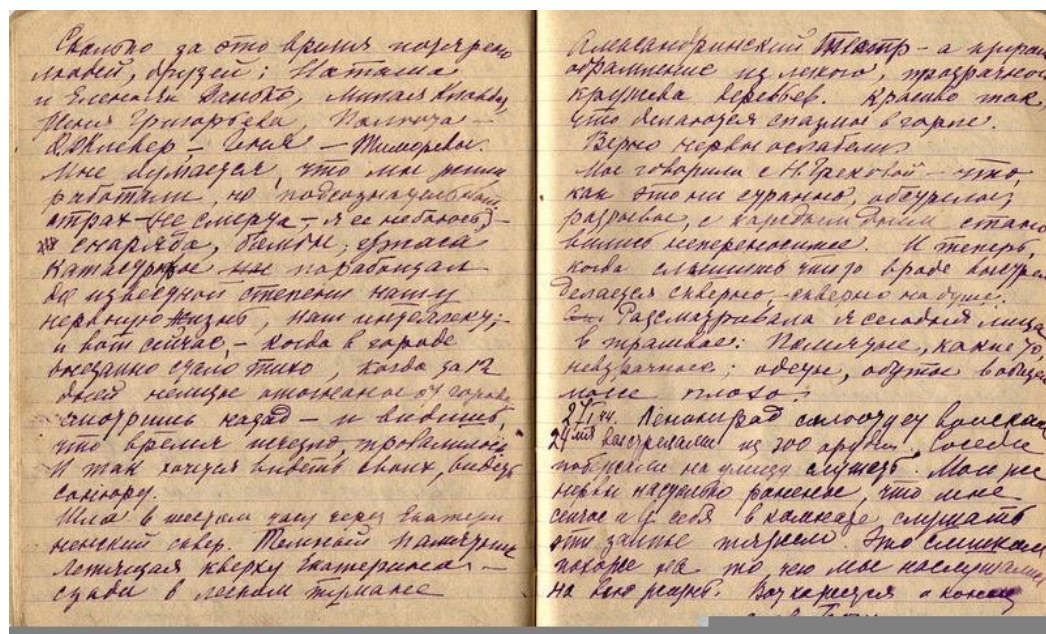 Сколько за это время потеряно
людей, друзей: Наташа
и Елена Данько,
Женя Григорьева,
Мне думается, что мы жили
работали, но подсознательный
страх – (не смерти – я ее не боюсь) –
снаряда, бомбы, ужаса
катастрофы порабощал
до известной степени нашу
нервную жизнь, наш интеллект;
и вот сейчас, – когда в городе
внезапно стало тихо, когда за 12
дней немцы отогнаны от города
смотришь назад – и видишь,
что время исчезло, провалилось.
И так хочется видеть своих, видеть
Шла в шестом часу через Екатери
ненский сквер. Темный памятник
летящая кверху Екатерина –
сзади в легком тумане
Александринский Театр – а кругом
обрамление из легкого, прозрачного
кружева деревьев. Красиво так
что делаются спазмы в горле.
Верно нервы ослабели.
Мы говорили с Н. Греховой – что,
как это ни странно, обстрелы,
разрывы, с каждым днем стано
вились непереносимее. И теперь,
когда слышишь что-то вроде выстрела
делается скверно, скверно на душе.
Рассматривала я сегодня лица
в трамвае: Помятые, какие-то,
невзрачные; одеты, обуты в общем
тоже плохо.
27/I 44. Ленинград салютует войскам
24мя выстрелами из 300 орудий. Соседи
побежали на улицу слушать. Мои же
нервы настолько ранены, что мне
сейчас и у себя в комнате слушать
эти залпы тяжело. Это слишком
похоже на то чего мы наслушались
на всю жизнь.